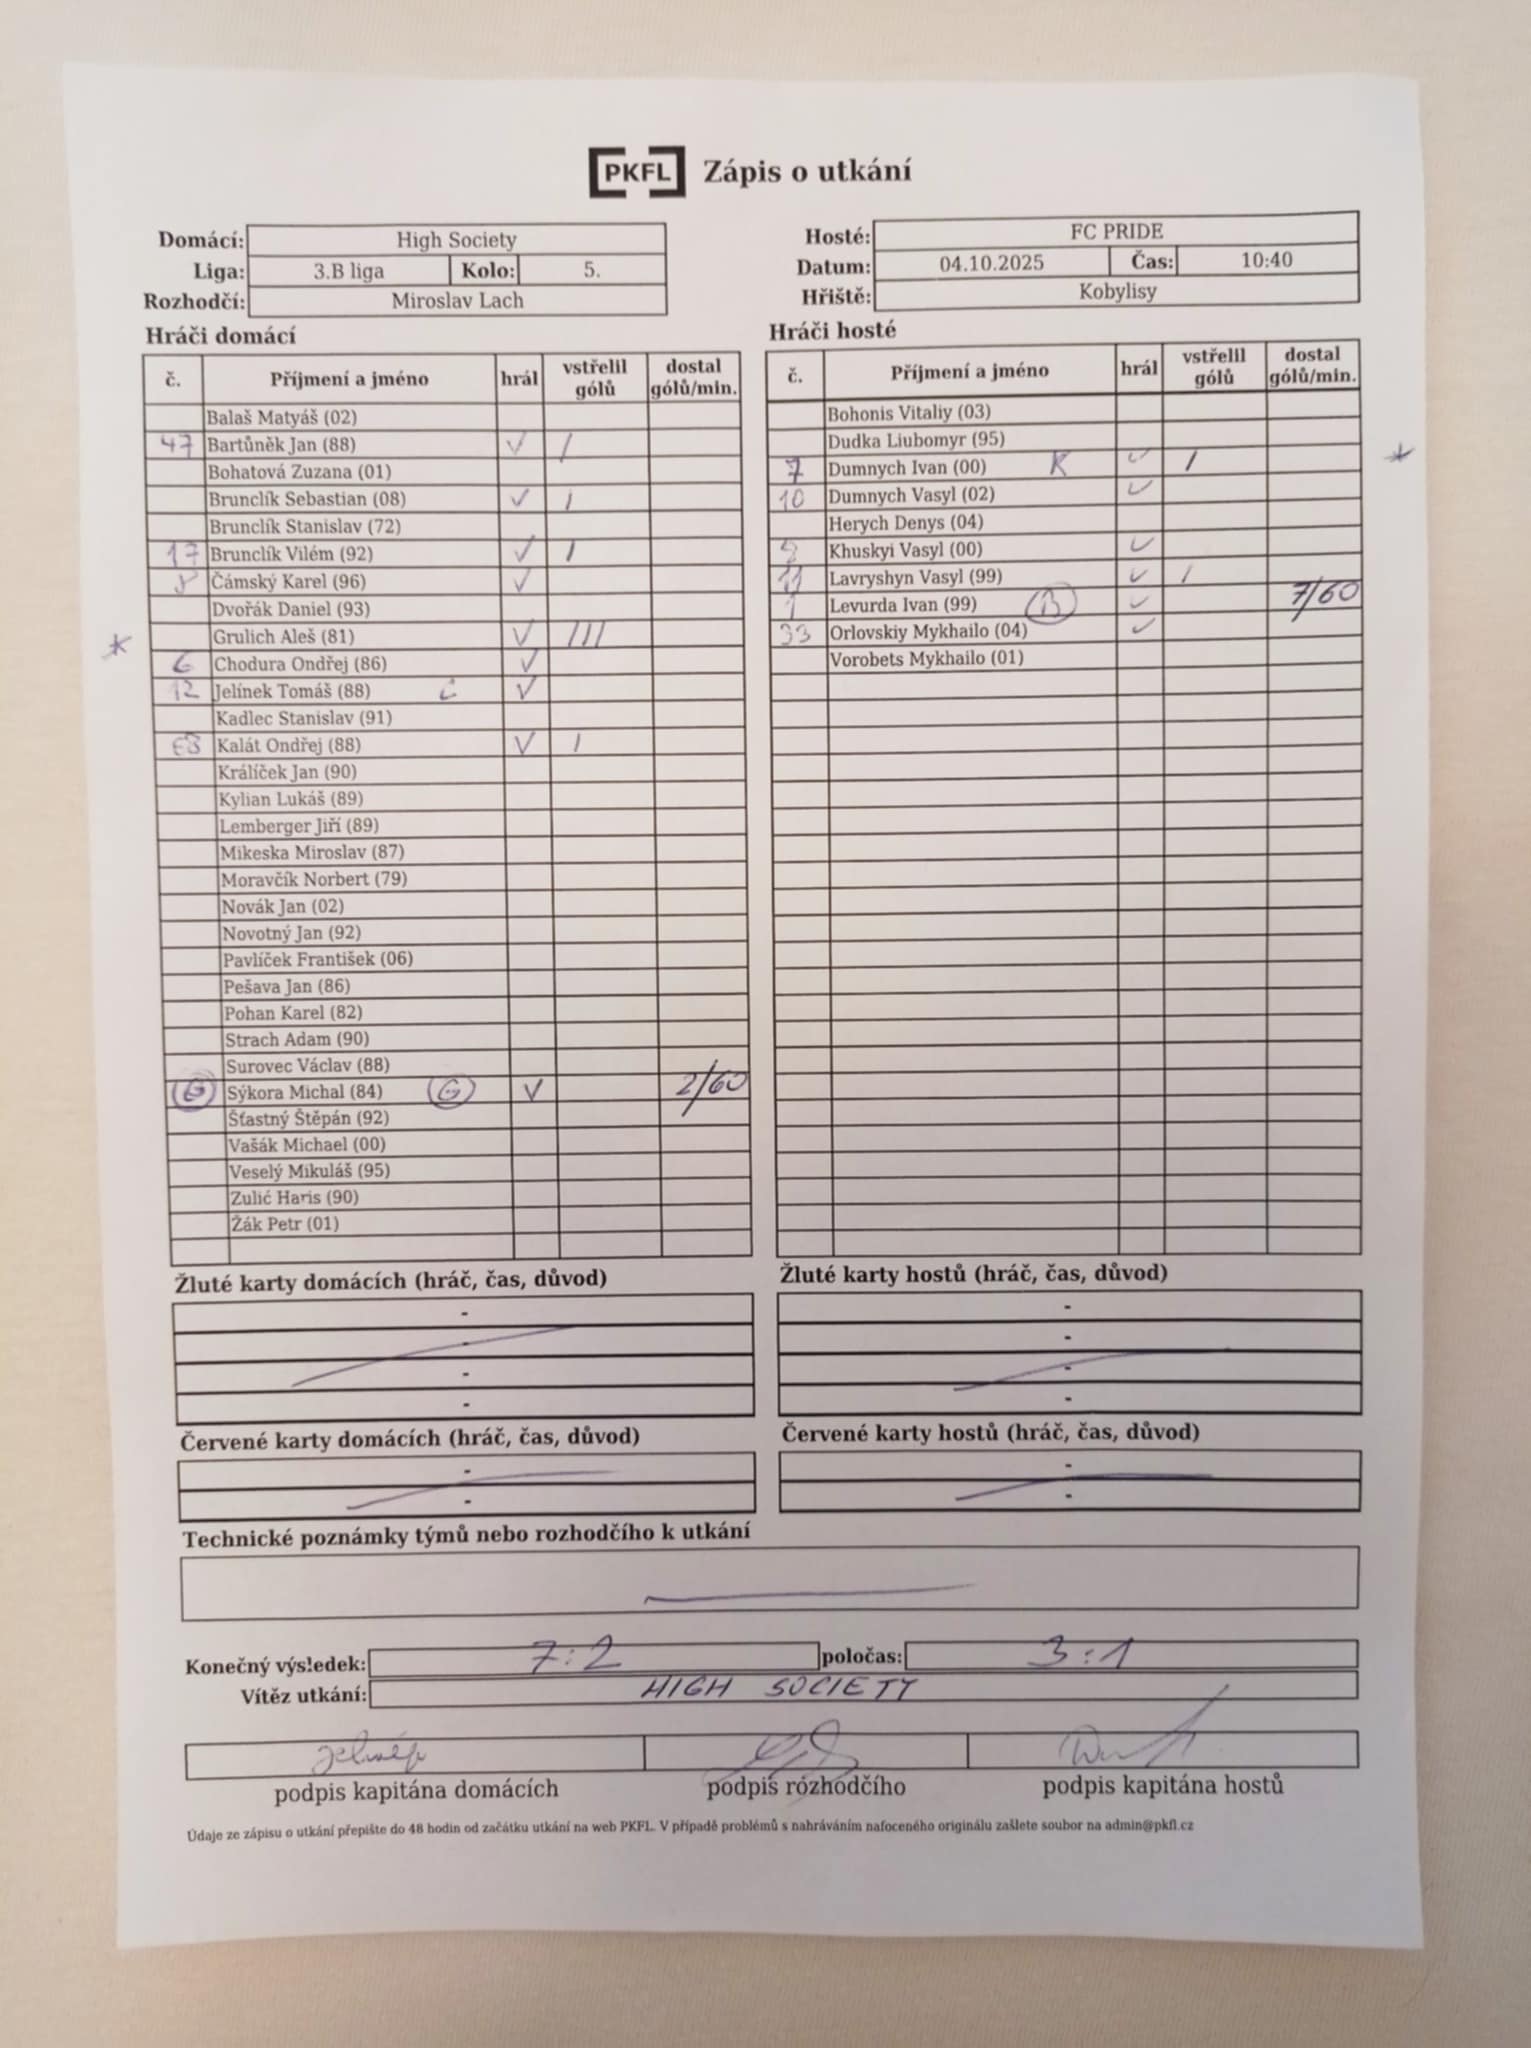 PKFL Zápis o utkání
Domácí: High Society
Liga: 3.B liga Kolo: 5.
Rozhodčí: Miroslav Lach
Hosté: FC PRIDE
Datum: 04.10.2025 Čas: 10:40
Hřiště: Kobylisy
Hráči domácí
č. Příjmení a jméno hrál vstřelil gólů dostal gólů/min.
Balaš Matyáš (02)
47 Bartůněk Jan (88) V /
Bohatová Zuzana (01)
Brunclík Sebastian (08) V /
Brunclík Stanislav (72)
17 Brunclík Vilém (92) V /
Čámský Karel (96) V
Dvořák Daniel (93)
* Grulich Aleš (81) V ///
6 Chodura Ondřej (86) V
12 Jelínek Tomáš (88) C V
Kadlec Stanislav (91)
Kalát Ondřej (88) V /
Králíček Jan (90)
Kylian Lukáš (89)
Lemberger Jiří (89)
Mikeska Miroslav (87)
Moravčík Norbert (79)
Novák Jan (02)
Novotný Jan (92)
Pavlíček František (06)
Pešava Jan (86)
Pohan Karel (82)
Strach Adam (90)
Surovec Václav (88)
G Sýkora Michal (84) G V 2/60
Šťastný Štěpán (92)
Vašák Michael (00)
Veselý Mikuláš (95)
Zulić Haris (90)
Žák Petr (01)
Hráči hosté
č. Příjmení a jméno hrál vstřelil gólů dostal gólů/min.
Bohonis Vitaliy (03)
Dudka Liubomyr (95)
7 Dumnych Ivan (00) K ✓ / *
10 Dumnych Vasyl (02) ✓
Herych Denys (04)
Khuskyi Vasyl (00) ✓
11 Lavryshyn Vasyl (99) ✓ /
1 Levurda Ivan (99) B ✓ 7/60
33 Orlovskiy Mykhailo (04) ✓
Vorobets Mykhailo (01)
Žluté karty domácích (hráč, čas, důvod)
-
-
-
-
Žluté karty hostů (hráč, čas, důvod)
-
-
-
-
Červené karty domácích (hráč, čas, důvod)
-
-
Červené karty hostů (hráč, čas, důvod)
-
-
Technické poznámky týmů nebo rozhodčího k utkání
Konečný výsledek: 7:2 poločas: 3:1
Vítěz utkání: HIGH SOCIETY
podpis kapitána domácích podpis rozhodčího podpis kapitána hostů
Údaje ze zápisu o utkání přepište do 48 hodin od začátku utkání na web PKFL. V případě problémů s nahráváním nafoceného originálu zašlete soubor na admin@pkfl.cz